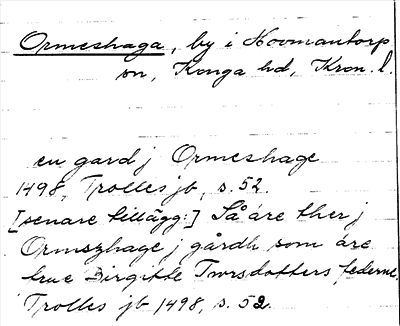 Ormeshaga, by i Hovmantorp
sn, Konga hd, Kron. l.
en gard j Ormeshage
1498, Trolles jb, s. 52.
[senare tillägg:] Så äre ther j
Ormszhage j gårdh som äre
hrue Birgitte Twrsdotters federne.
Trolles jb 1498, s. 52.